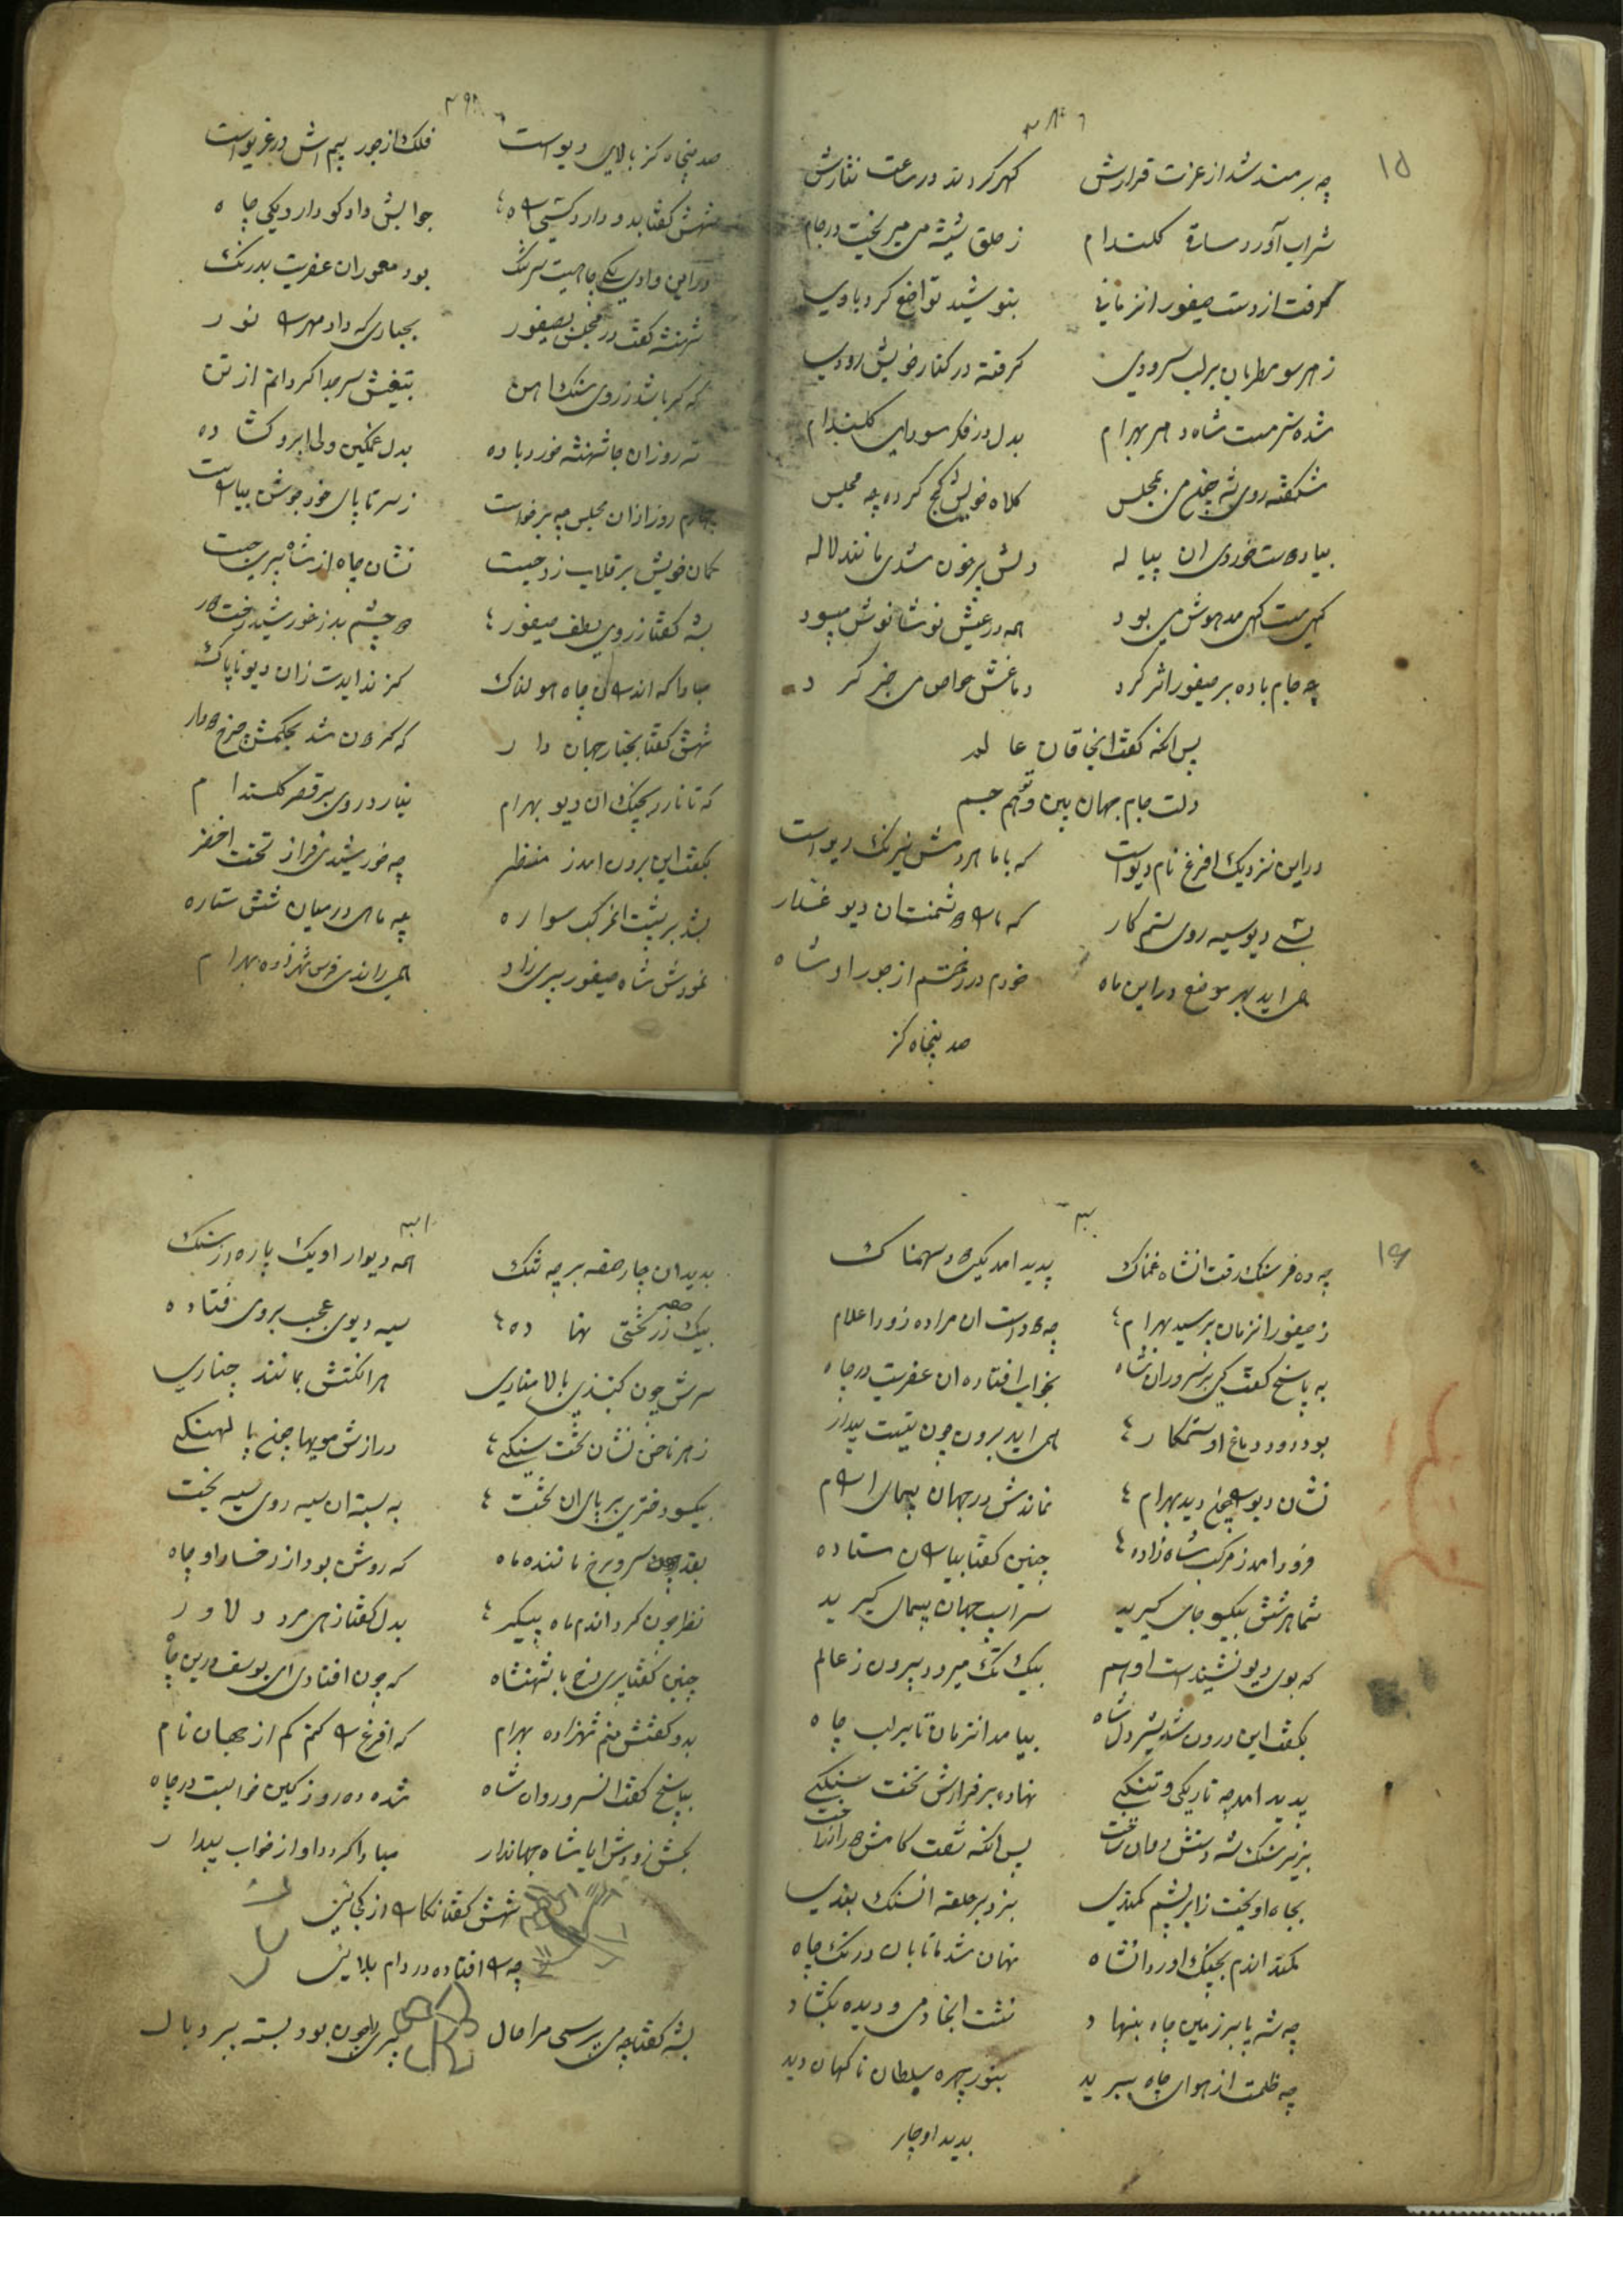 ۱۵
چه بر مسند شد از عزت قرارش گهر کردند در ساعت نثارش
شراب آورد ساقی گلندام ز حلق شیشه می میریخت در جام
گرفت از دست صیفور انزمانی بنوشید تواضع کرد باوی
ز هر سو مطربان بر لب سرودی گرفته در کنار خویش رودی
شده سرمست شاه دهر بهرام بدل در فکر سودای گلندام
شکفته روی شه چون می بمجلس کلاه خویش کج کرده چه مجلس
بیادست خوردی ان پیاله دلش پرخون شدی مانند لاله
گهی مست گهی مدهوش می بود همه در عیش نوشانوش میبود
چه جام باده بر صیفور اثر کرد دماغش خواص می خبر کرد
پس انگه گفت ای خاقان عالم
دلت جام جهان بین و تنهم جسم
در این نزدیک افرغ نام دیو است که با ما هر دمش نیرنگ ریو است
بشی دیو سیه روی ستمکار که ما را دشمنست ان دیو غدار
همی اید بهر موضع در این ماه خورم در دخترم از جور او شاه
صد پنجاه کز
صد پنجاه گز بالای دیو است فلک از جور بیم اش در غریو است
شهش گفتا بدو دارد کسی راه جوابش داد کو دارد یکی چاه
در این وادی یکی چاهیست سرتنگ بود معموران عفریت بدرنگ
شهنشه گفت در مجلس بصیفور بجباری که داد مهر را نور
که گر باشد ز روی سنگ اهن بتیغش سر جدا گردانم از تن
سه روز ان جا شهنشه خورد باده بدل غمگین ولی ابرو گشاده
چهارم روز از ان مجلس چه برخواست ز سر تا پای خود جوشن بیاراست
کمان خویش بر قلاب زد چست نشان چاه از شاه پری جست
بشه گفتا ز روی لطف صیفور که چشم بد ز خورشید رخت دور
مبادا که اندر ان چاه هولناک گزند ایدت زان دیو ناپاک
شهش گفتا بجبار جهان دار که گردن شد بحکمش چرخ دوار
که تا نارد بچنگ ان دیو بهرام نیارد روی بر قصر گلندام
بگفت این برون امد ز منظر چه خورشیدی فراز تخت اخضر
بشد بر پشت ان مرکب سواره چه ماهی در میان شش ستاره
نمودش شاه صیفور پری زاد همی راندی فرس شهزاده بهرام
۱۶
چه ده فرسنگ رفت انشاه غمناک پدید امد یکی دود سهمناک
ز صیفور انزمان پرسید بهرام چه دود است ان مرا ده زود اعلام
به پاسخ گفت کی بر سروران شاه بخواب افتاده ان عفریت در چاه
بود دود دماغ او ستمکار همی اید برون چون نیست بیدار
نشان دیو را چون دید بهرام نماندش در جهان پیمای ارام
فرود امد ز مرکب شاه زاده چنین گفتا بیاران ستاده
شما هر شش بیکسو جای گیرید سر اسب جهان پیمای گیرید
که بوی دیو نشنید است او هم بیک تک میرود بیرون ز عالم
بگفت این درون شد شیر دل شاه بیامد انزمان تا بر لب چاه
پدید امد چه تاریکی و تنگی نهاده بر فرازش تخت سنگی
بزیر سنگ شه دستش روان ساخت پس انگه تخت کامش دور انداخت
بچاه اویخت ز ابریشم کمندی بزد بر حلقه انسنگ بندی
کمند اندم بچنگ اورد انشاه نهان شد ماه تابان در تک چاه
چه شه پا بر زمین چاه بنهاد نشست انجا دمی و دیده بگشاد
چه ظلمت از هوای چاه ببرید بنور چهره سلطان ناگهان دید
بدید او چار
بدید ان چار صفه بر چه تنگ همه دیوار او یک پاره از سنگ
بیک صفه ز زر تختی نهاده سیه دیوی عجب بروی فتاده
سرش چون گنبذی بالا مناری هر انگشتش بمانند چناری
ز هر ناخن نشان تخت سنگی درازش مویها چون پا لهنگی
بیکسو دختری بر پای ان تخت به بسته ان سیه روی سیه بخت
بقد چون سرو برخ ماننده ماه که روشن بود از رخسار او چاه
نظر چون کرد اندم ماه پیکر بدل گفتا زهی مرد دلاور
چنین گفتا پری رخ با شهنشاه که چون افتادی ای یوسف درین چاه
بدو گفتش منم شهزاده بهرام که افرغ را کنم کم از جهان نام
بپاسخ گفت انسرو روان شاه شده ده روز کین خوابست در چاه
بکش زودش ایا شاه جهاندار مبادا گردد او از خواب بیدار
شهش گفتا نگارا از کجائی
چه را افتاده در دام بلائی
بشه گفتا چه می پرسی مرا حال پری چون بود بسته پر و بال